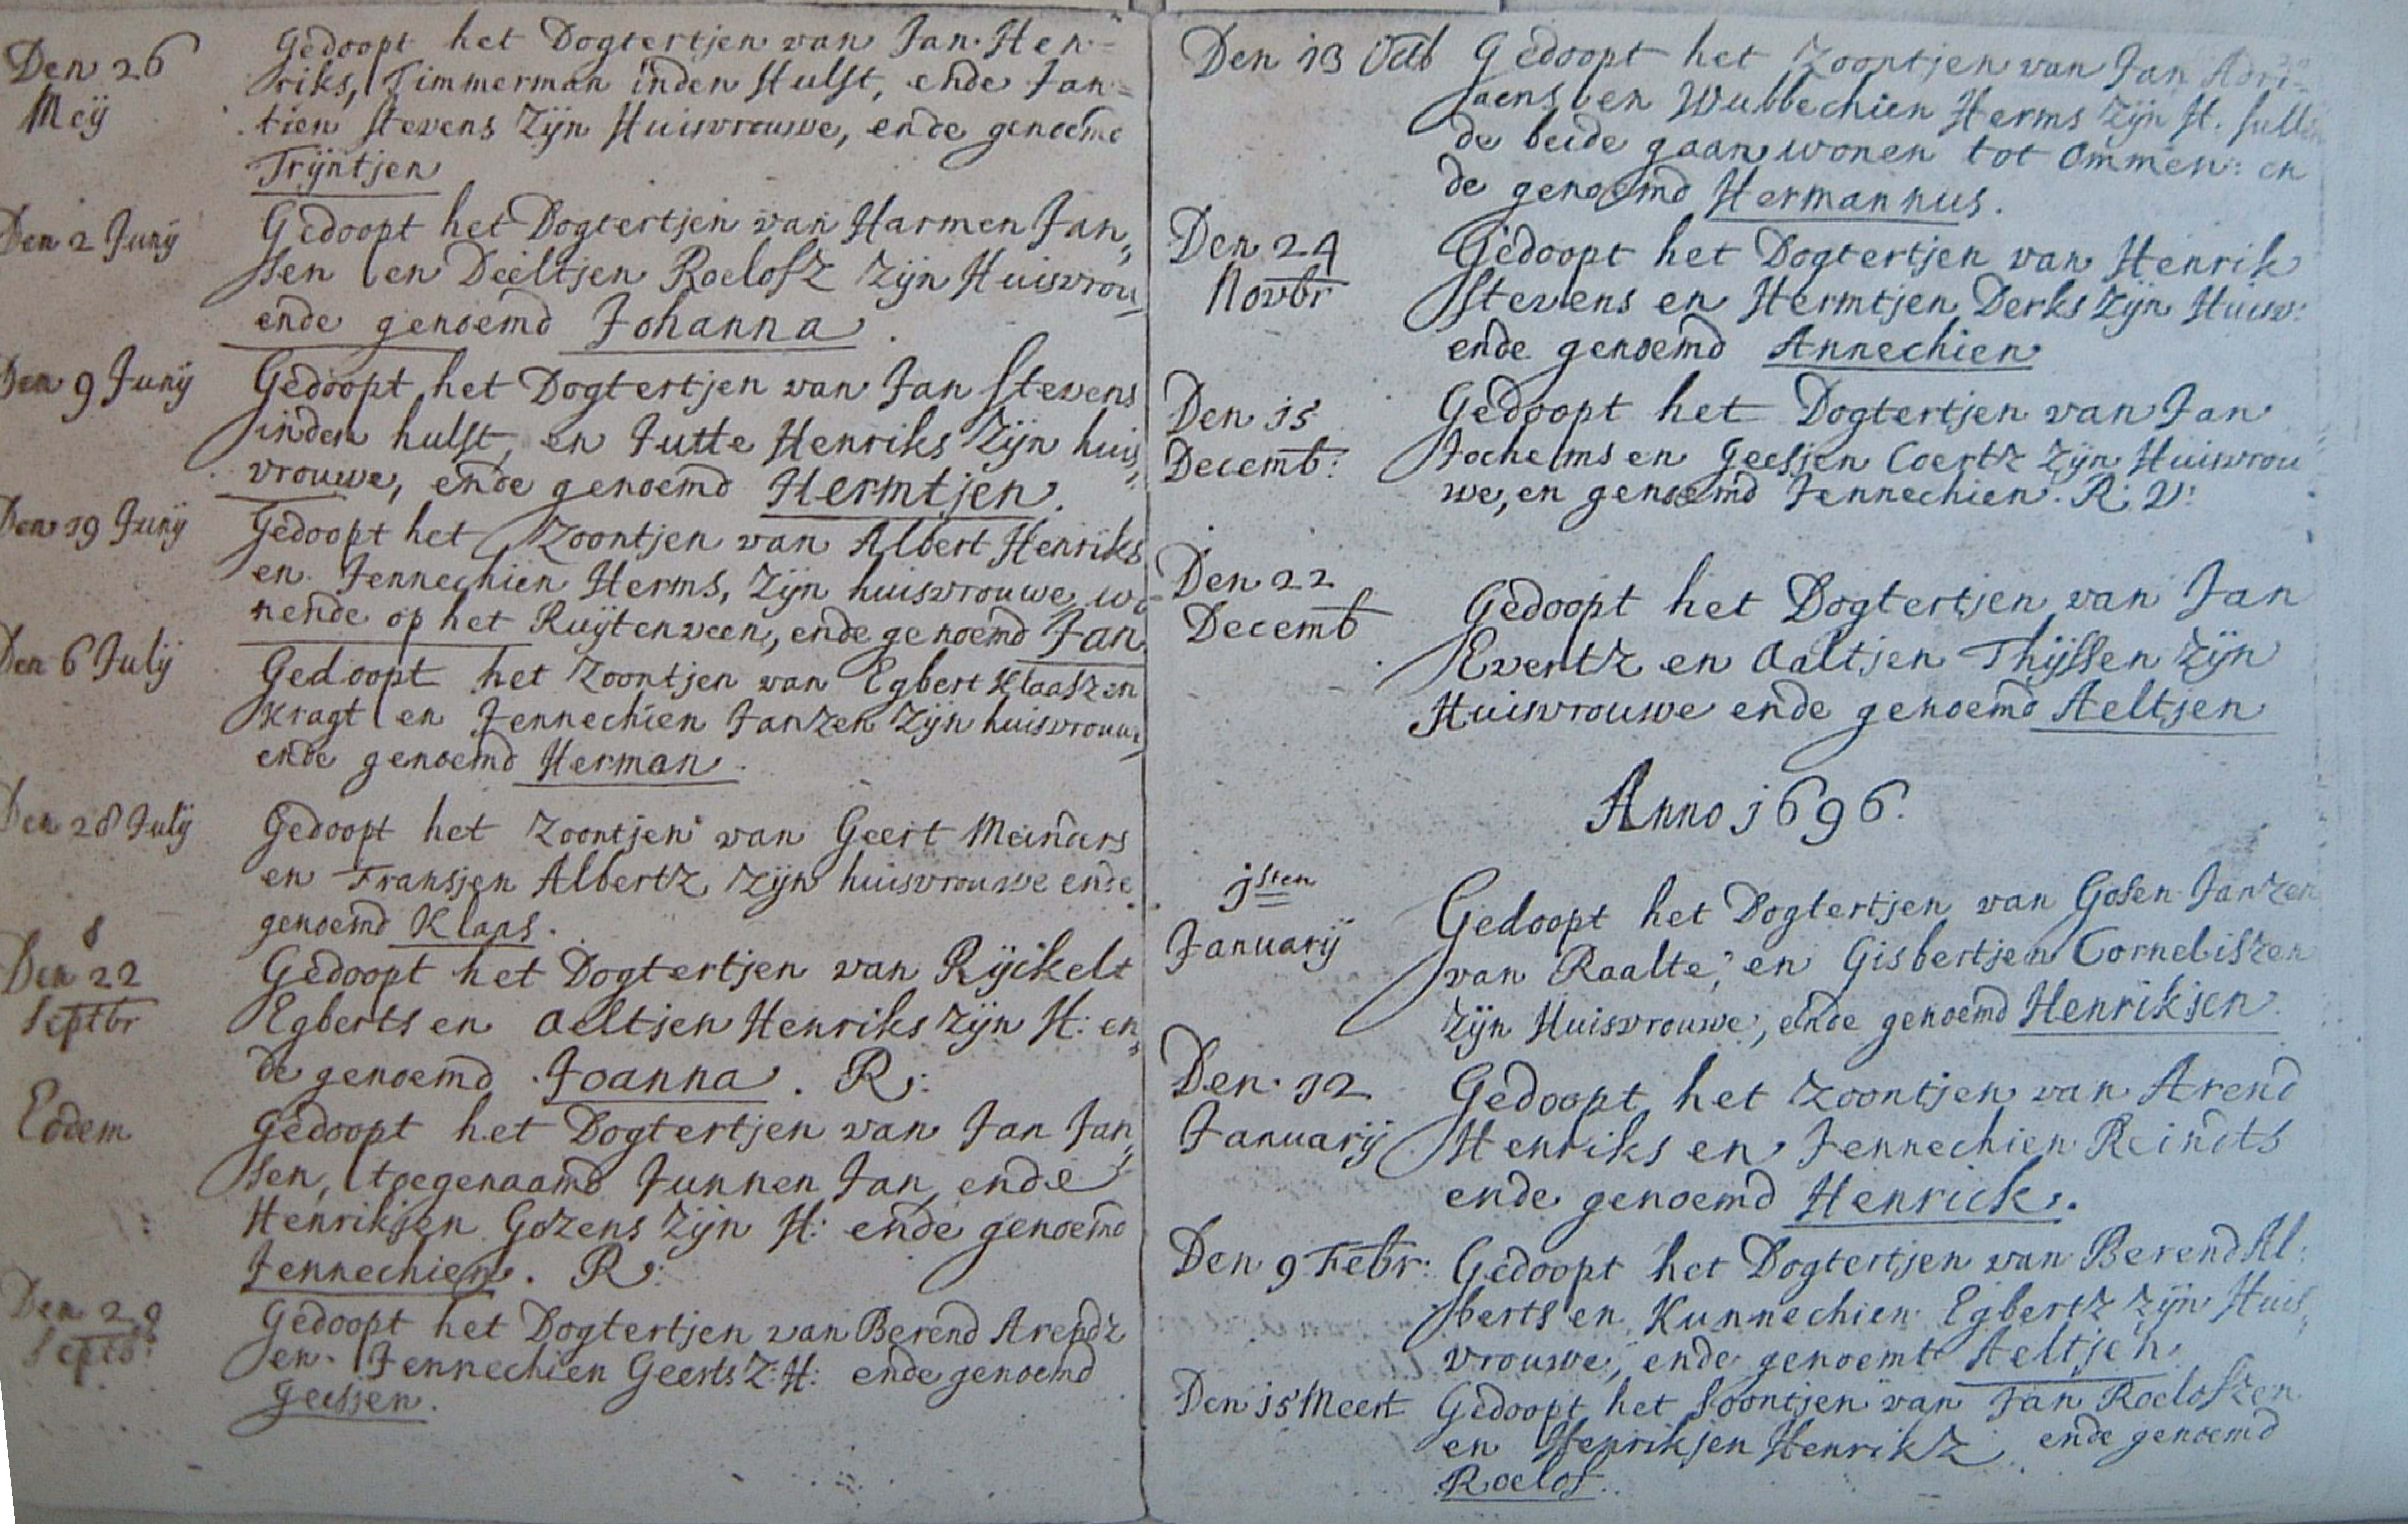 Den 26
Meÿ
Gedoopt het Dogtertjen van Jan Hen-
riks, Timmerman inden Hulst, ende Jan-
tien Stevens Zÿn Huisvrouwe, ende genoemd
Trÿntjen
Den 2 Junÿ
Gedoopt het Dogtertjen van Harmen Jan„
sen en Deeltjen Roelofz Zÿn Huisvrou
ende genoemd Johanna.
Den 9 Junÿ
Gedoopt het Dogtertjen van Jan Stevens
inden hulst, en Jutte Henriks Zÿn huis„
vrouwe, ende genoemd Hermtjen.
Den 19 Junÿ
Gedoopt het Zoontjen van Albert Henriks
en Jennechien Herms, Zÿn huisvrouwe wo-
nende op het Ruÿtenveen, ende genoemd Jan
Den 6 Julÿ
Gedoopt het Zoontjen van Egbert Klaaszen
Kragt en Jennechien Janzen Zÿn huisvrouw
ende genoemd Herman.
Den 28 Julÿ
Gedoopt het Zoontjen van Geert Meinders
en Fransjen Albertz Zÿn huisvrouwe ende
genoemd Klaas.
8
Den 22
Septbr
Gedoopt het Dogtertjen van Rÿckelt
Egberts en Aeltjen Henriks Zÿn H: en„
de genoemd Joanna. R:
Eodem
Gedoopt het Dogtertjen van Jan Jan„
sen, toegenaamd Junnen Jan, ende
Henrikjen Gozens Zÿn H: ende genoemd
Jennechien. R:
Den 29
Septb:
Gedoopt het Dogtertjen van Berend Arendz
en Jennechien Geerts Z: H: ende genoemd
Geesjen.
Den 13 Octb
Gedoopt het Zoontjen van Jan Adri-
aens en Wubbechien Herms Zÿn H. sullen
de beide gaan wonen tot Ommen: en
de genoemd Hermannus.
Den 24
Novbr
Gedoopt het Dogtertjen van Henrik
Stevens en Hermtjen Derks Zÿn Huisv:
ende genoemd Annechien
Den 15
Decemb:
Gedoopt het Dogtertjen van Jan
Jochelms en Geesjen Coertz Zÿn Huisvrou
we, en genoemd Jennechien. R: V:
Den 22
Decemb
Gedoopt het Dogtertjen van Jan
Evertz en Aaltjen Thÿssen Zÿn
Huisvrouwe ende genoemd Aeltjen
Anno 1696.
1sten
Januarÿ
Gedoopt het Dogtertjen van Gosen Janzen
van Raalte, en Gisbertjen Corneliszen
Zÿn Huisvrouwe, ende genoemd Henriksen.
Den 12
Januarÿ
Gedoopt het Zoontjen van Arend
Henriks en Jennechien Reindts
ende genoemd Henrick.
Den 9 Febr:
Gedoopt het Dogtertjen van Berend Al:
berts en Kunnechien Egbertz Zÿn Huis„
vrouwe, ende genoemt Aeltjen.
Den 15 Meert
Gedoopt het Soontjen van Jan Roelofzen
en Henriksjen Henrikz ende genoemd
Roelof.